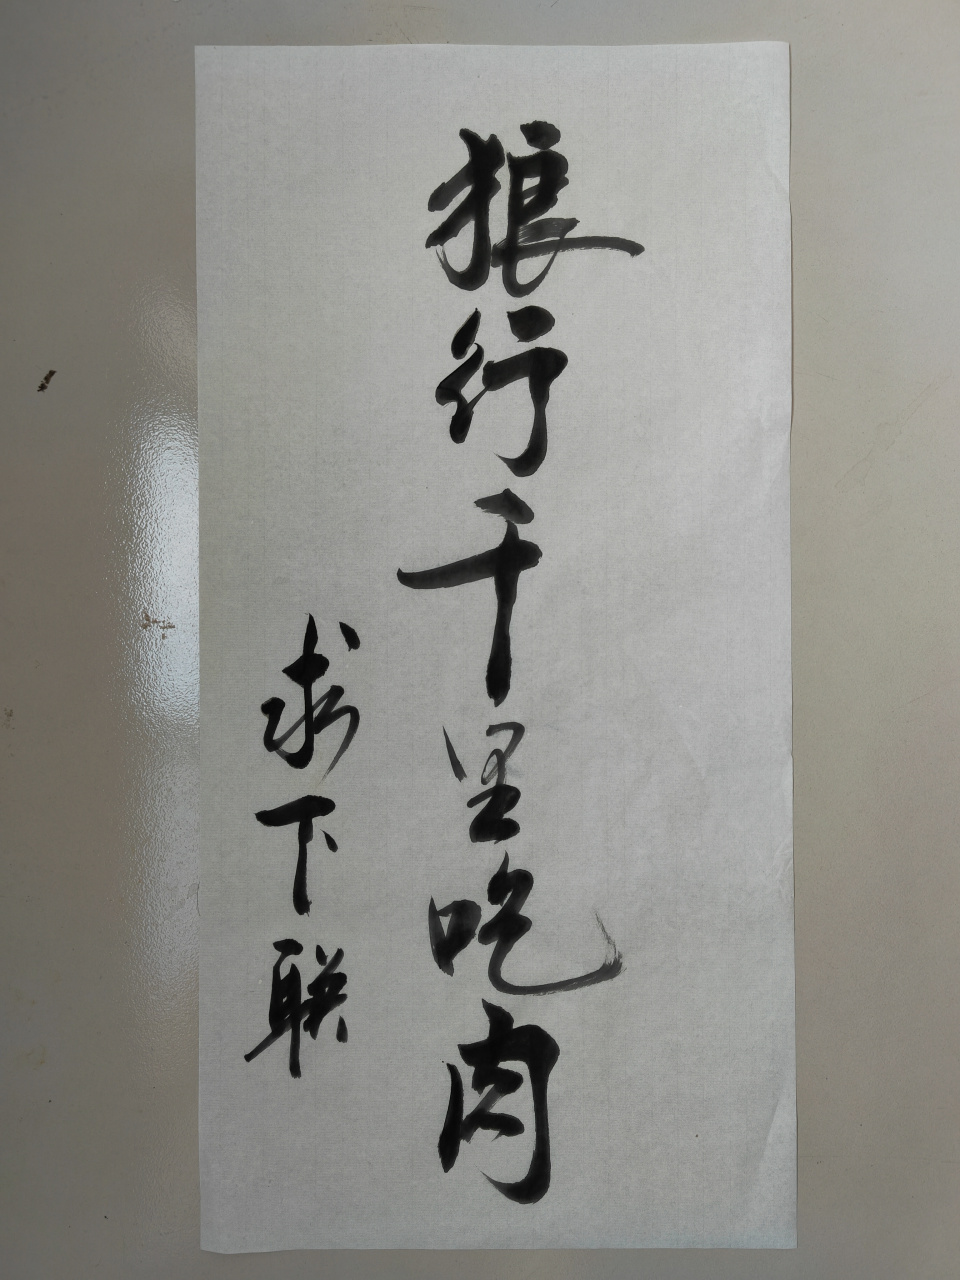 狼行千里吃肉
求下联